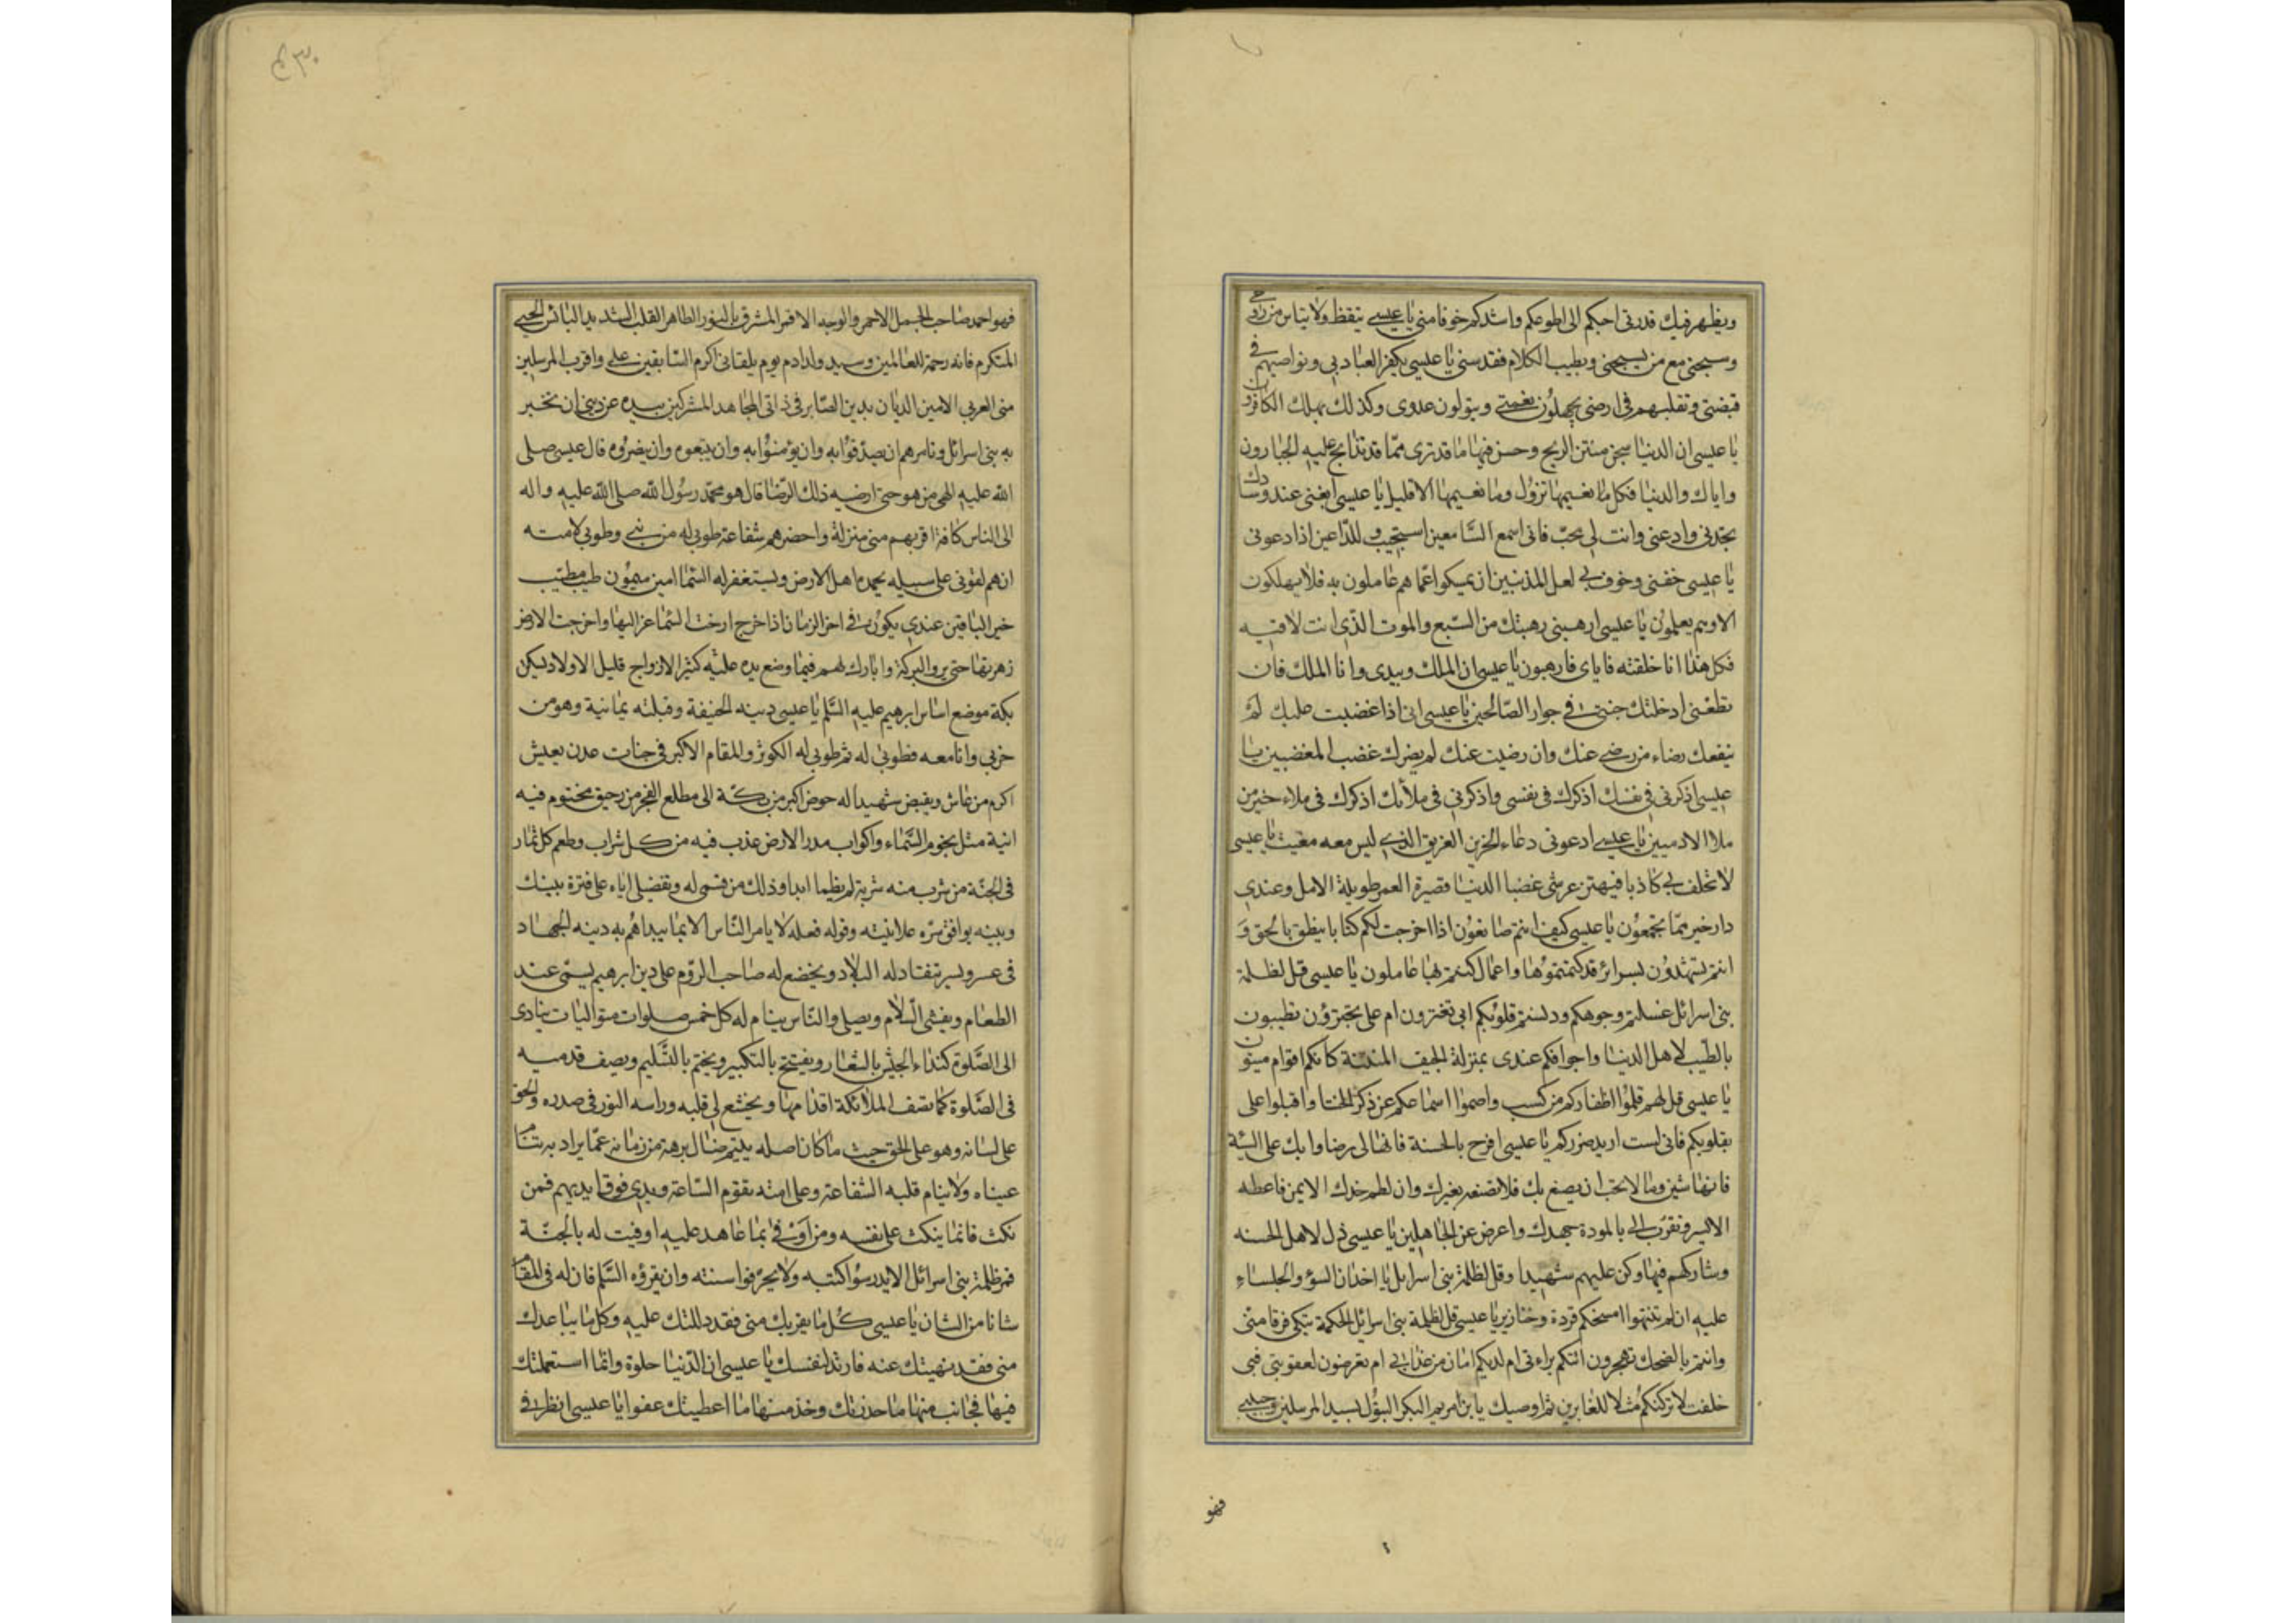 ويظهر فيك قدرتى احبكم الى اطوعكم واشدكم خوفا منى يا عيسى تيقظ ولا تياس من روحى
وسبحنى مع من يسبحنى وبطيب الكلام فقدسنى يا عيسى كيف يكفر العباد بى ونواصيهم فى
قبضتى وتقلبهم فى ارضى يجهلون نعمتى ويتولون عدوى وكذلك يهلك الكافرون
يا عيسى ان الدنيا سجن منتن الريح وحسن فيها ما قد ترى مما قد تذابح عليه الجبارون
واياك والدنيا فكل ما نعيمها تزول وما نعيمها الا قليل يا عيسى ابغنى عند وسادك
تجدنى وادعنى وانت لى محب فانى اسمع السامعين استجيب للداعين اذا دعونى
يا عيسى خفنى وخوف بى لعل المذنبين ان يمسكوا عما هم عاملون به فلا يهلكون
الا وهم يعلمون يا عيسى ارهبنى رهبتك من السبع والموت الذى انت لاقيه
فكل هذا انا خلقته فاياى فارهبون يا عيسى ان الملك وبيدى وانا الملك فان
تطعنى ادخلتك جنتى فى جوار الصالحين يا عيسى انى اذا غضبت عليك لم
ينفعك رضاء من رضى عنك وان رضيت عنك لم يضرك غضب المغضبين يا
عيسى اذكرنى فى نفسك اذكرك فى نفسى واذكرنى فى ملائك اذكرك فى ملاء خير من
ملاا لادميين يا عيسى ادعونى دعاء الحزين الغريق الذى ليس معه مغيث يا عيسى
لا تحلف بى كاذبا فيهتز عرشى غضبا الدنيا قصيرة العمر طويلة الامل وعندى
دار خير مما تجمعون يا عيسى كيف انتم صانعون اذا اخرجت لكم كتابا ينطق بالحق و
انتم تشهدون بسرائر قد كتمتموها واعمال كنتم بها عاملون يا عيسى قل لظلمة
بنى اسرائل غسلتم وجوهكم ودنستم قلوبكم ابى تغترون ام على تجترؤن تطيبون
بالطيب لاهل الدنيا واجوافكم عندى بمنزلة الجيف المنتنة كانكم اقوام ميتون
يا عيسى قل لهم قلموا اظفاركم من كسب واصموا اسماعكم عن ذكر الخنا واقبلوا على
بقلوبكم فانى لست اريد صوركم يا عيسى افرح بالحسنة فانها لى رضا وابك على السيئة
فانها شين وما لا تحب ان يصنع بك فلا تصنعه بغيرك وان لطم خدك الايمن فاعطه
الايسر وتقرب الى بالمودة جهدك واعرض عن الجاهلين يا عيسى ذل لاهل الحسنه
وشاركهم فيها وكن عليهم شهيدا وقل لظلمة بنى اسرايل يا اخدان السوء والجلساء
عليه ان لم تنتهوا امسخكم قردة وخنازير يا عيسى قل لظلمة بنى اسرائل الحكمة تبكى فرقا منى
وانتم بالضحك تهجرون اتتكم براءتى ام لديكم امان من عذابى ام تعرضون لعقوبتى فبى
خلفت لاتركنكم مثلا للغابرين ثم اوصيك يا بن مريم البكر البتول بسيد المرسلين وحبيبى
فهو
فهو احمد صاحب الجمل الاحمر والوجه الاقمر المشرق بالنور الطاهر القلب الشديد الباس الحيى
المتكرم فانه رحمة للعالمين وسيد ولد ادم يوم يلقانى اكرم السابقين على واقرب المرسلين
منى العربى الامين الديان بدينى الصابر فى ذاتى المجاهد المشركين بيده عن دينى ان تخبر
به بنى اسرائل وتامرهم ان يصدقوا به وان يؤمنوا به وان يتبعوه وان ينصروه قال عيسى صلى
الله عليه الهى من هو حتى ارضيه ذلك الرضا قال هو محمد رسول الله صلى الله عليه واله
الى الناس كافة اقربهم منى منزلة واحضرهم شفاعة طوبى له من نبى وطوبى لامته
ان هم لقونى على سبيله يحمده اهل الارض ويستغفر له السما امين ميمون طيب مطيب
خير الباقين عندى يكون فى اخر الزمان اذا خرج ارخت السما عزاليها واخرجت الارض
زهرتها حتى يروا البركة وابارك لهم فيما وضع يده عليه كثير الازواج قليل الاولاد يسكن
بكة موضع اساس ابرهيم عليه السلم يا عيسى دينه الحنيفة وقبلته يمانية وهو من
حزبى وانا معه فطوبى له ثم طوبى له الكوثر والمقام الاكبر فى جنات عدن يعيش
اكرم من عاش ويقبض شهيدا له حوض اكبر من بكة الى مطلع الفجر من رحيق مختوم فيه
انية مثل نجوم السماء واكواب مدر الارض عذب فيه من كل شراب وطعم كل ثمار
فى الجنة من شرب منه شربة لم يظما ابدا وذلك من قسمى له وتفضيلى اياه على فترة بينك
وبينه يوافق سره علانيته وقوله فعله لا يامر الناس الا بما يبداهم به دينه الجهاد
فى عسر ويسر تنقاد له البلاد ويخضع له صاحب الروم على دين ابرهيم يسمى عند
الطعام ويفشى السلام ويصلى والناس نيام له كل خمس صلوات متواليات ينادى
الى الصلوة كنداء الجيش بالشعار ويفتتح بالتكبير ويختم بالتسليم ويصف قدميه
فى الصلوة كما تصف الملائكة اقدامها ويخشع لى قلبه وراسه النور فى صدره والحق
على لسانه وهو على الحق حيث ما كان اصله يتيم ضال برهة من زمانه عما يراد به تنام
عيناه ولا ينام قلبه الشفاعة وعلى امته تقوم الساعة ويدى فوق ايديهم فمن
نكث فانما ينكث على نفسه ومن اوفى بما عاهد عليه اوفيت له بالجنة
فمر ظلمة بنى اسرائل الا يدرسوا كتبه ولا يحرفوا سنته وان يقرؤه السلم فان له فى المقام
شانا من الشان يا عيسى كل ما يقربك منى فقد دللتك عليه وكل ما يباعدك
منى فقد نهيتك عنه فارتد لنفسك يا عيسى ان الدنيا حلوة وانما استعملتك
فيها فجانب منها ما حذرتك وخذ منها ما اعطيتك عفوا يا عيسى انظر فى